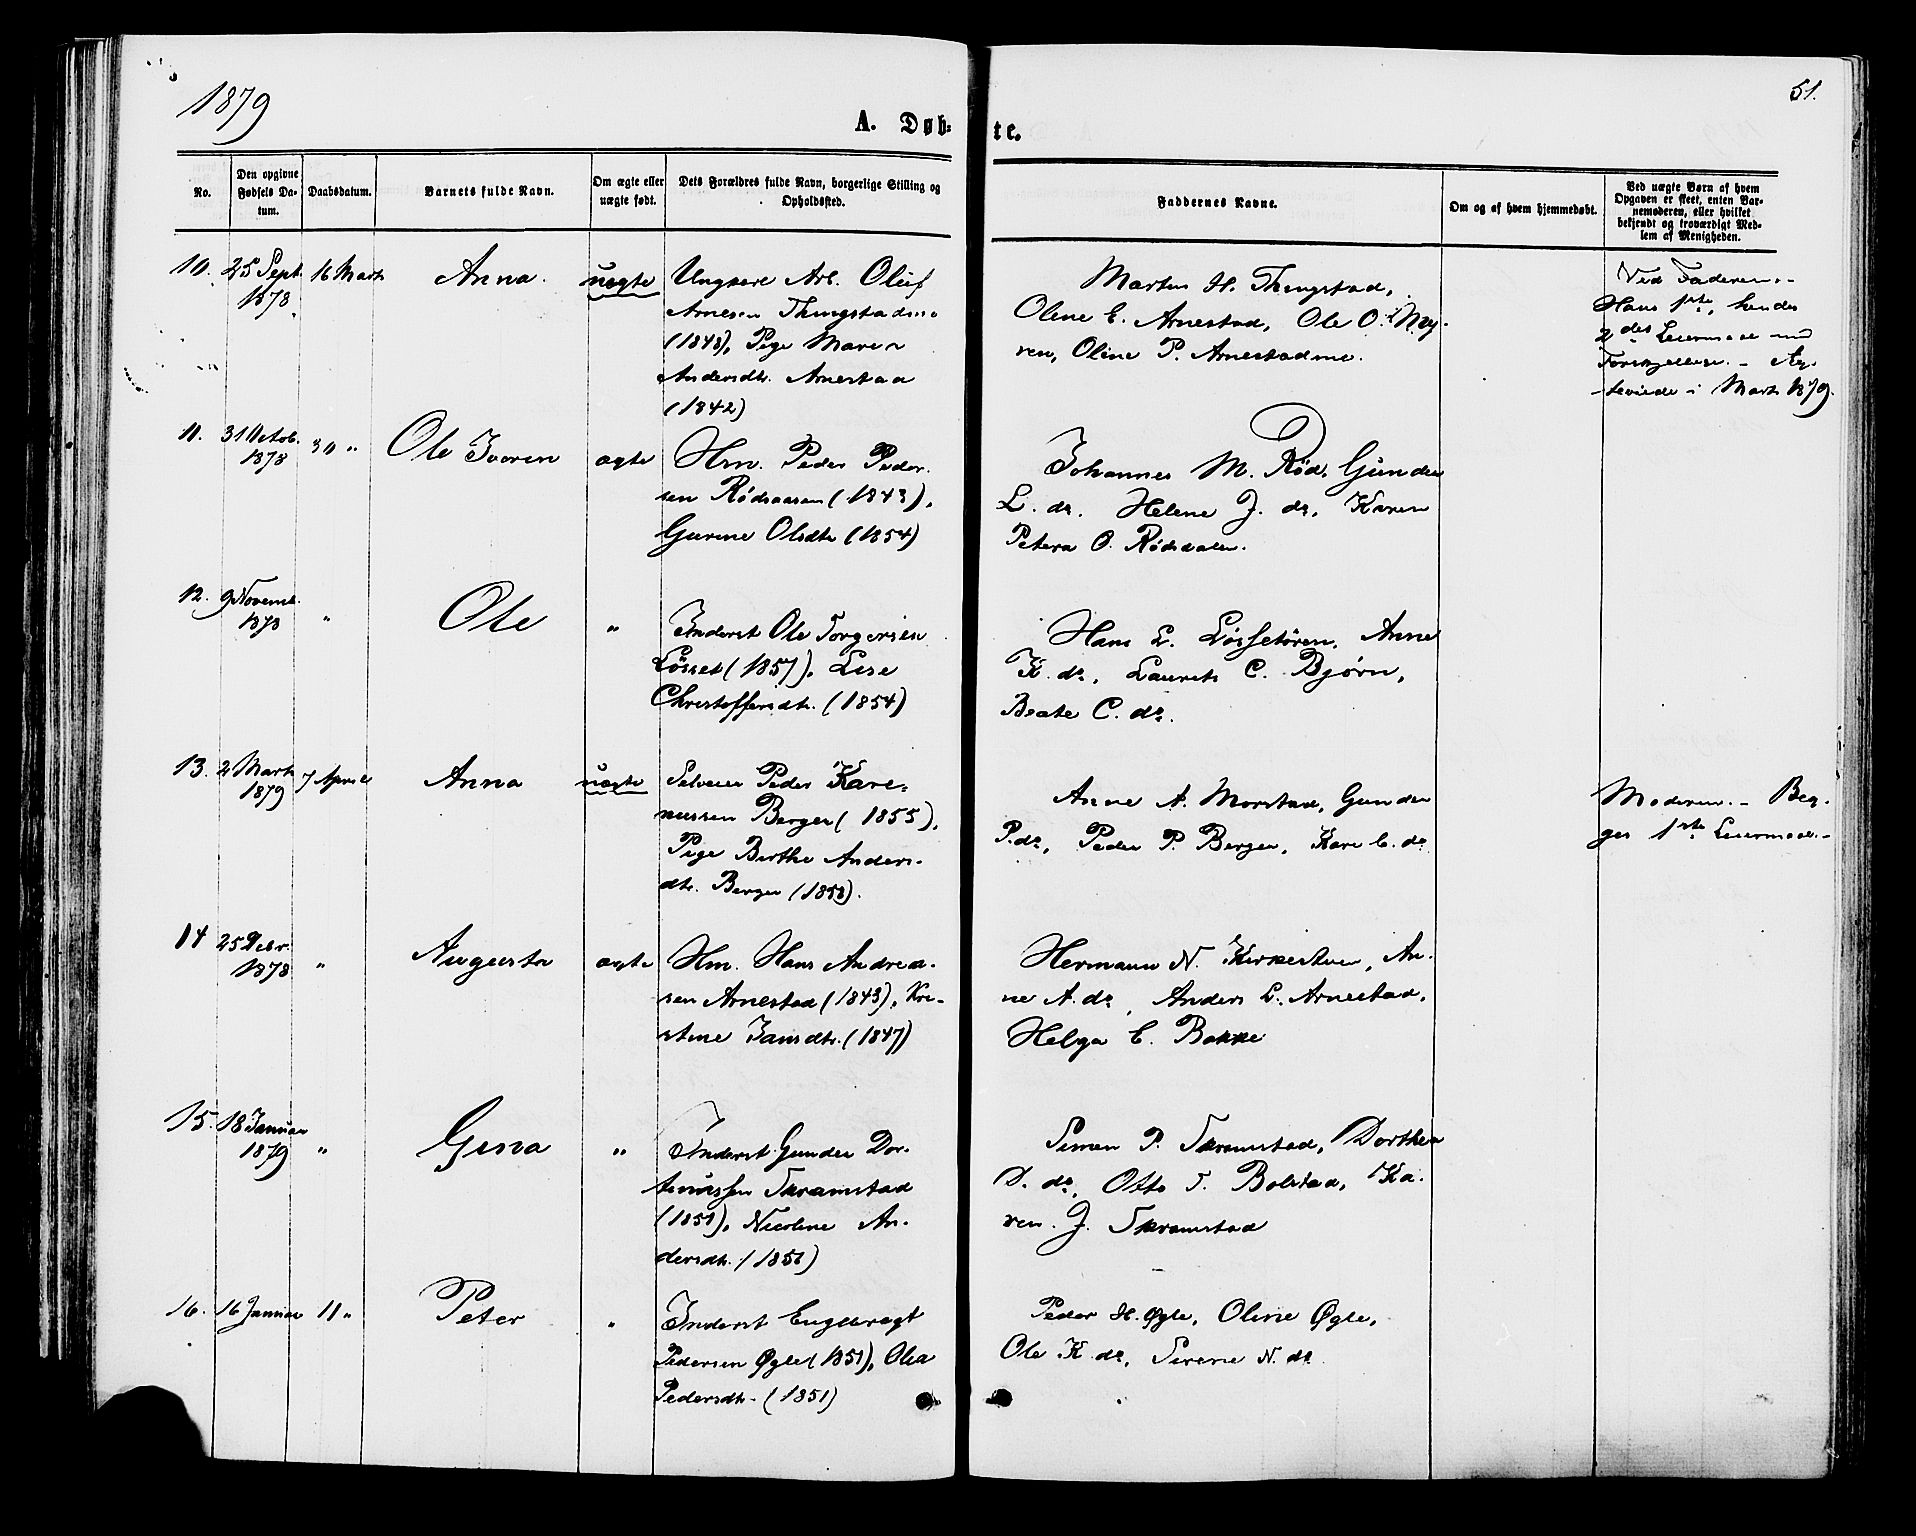 1879
51.
A. Døb-
te.
No.
Den opgivne
Fødsels Da-
tum.
Daabsdatum.
Barnets fulde Navn.
Om ægte eller
uægte født.
Dets Forældres fulde Navn, borgerlige Stilling og
Opholdssted.
Faddernes Navne.
Om og af hvem hjemmedøbt.
Ved uægte Børn af hvem
Opgaven er skeet, enten Bar-
nemoderen, eller hvilket
bekjendt og troværdigt Med-
lem af Menigheden.
10. 25 Sept.
1878
16 Marts
Anna.
uægte
Ungkarl Arb. Oluf
Arnesen Thingstad
(1848), Pige Maren
Andersdtr. Arnestad
(1842)
Marten H. Thingstad,
Olene E. Arnestad, Ole O. My-
ren, Oline P. Arnestad
Ved Faderen.-
Hans 1ste, hendes
2det Leiermaal
- Æg-
teviede i Marts 1879.
11. 31 Octob.
1878
30 "
Ole Ivoren
ægte
Hm. Peder Peder-
sen Rødsaasen (1843),
Gurine Olsdtr (1854)
Johannes M. Rød, Gunder
L. do. Helene J. do, Karen
Petera O. Rødsdalen.
12. 9 Novemb.
1878
"
Ole
"
Inderst Ole Torgersen
Løsset (1857), Lise
Christoffersdtr. (1854)
Hans L. Løssetøren, Anne
K. do, Laurits C. Bjørn,
Beate C. do.
13. 2 Marts
1879
7 April
Anna
uægte
Selveier Peder Kare-
nussen Berger (1855),
Pige Berthe Anders-
dtr. Berger (1858).
Anne A. Morstad, Gunder
P. do, Peder P. Berger, Kari C. do
Moderen. - Beg-
ges 1ste Leiermaal.-
14 25 Febr.
1878
"
Augusta
ægte
Hm. Hans Andrea-
sen Arnestad (1843), Kri-
stine Jansdtr. (1847)
Hermann N. Kirkestuen, An-
ne A. do, Anders L. Arnestad,
Helga E. Bakke
15. 18 Januar
1879
"
Gina
"
Inderst Gunder Dor-
tinussen Skramstad
(1851), Nicoline An-
dersdtr. (1851)
Simen P. Skramstad, Dorthea
D. do, Otto T. Bolstad, Ka-
ren. J. Skramstad
16. 16 Januar
11 "
Peter
"
Inderst Engebregt
Pedersen Øgle (1851), Olea
Pedersdtr. (1851)
Peder H. Øgle, Oline Øgle,
Ole K. do, Sirene N. do